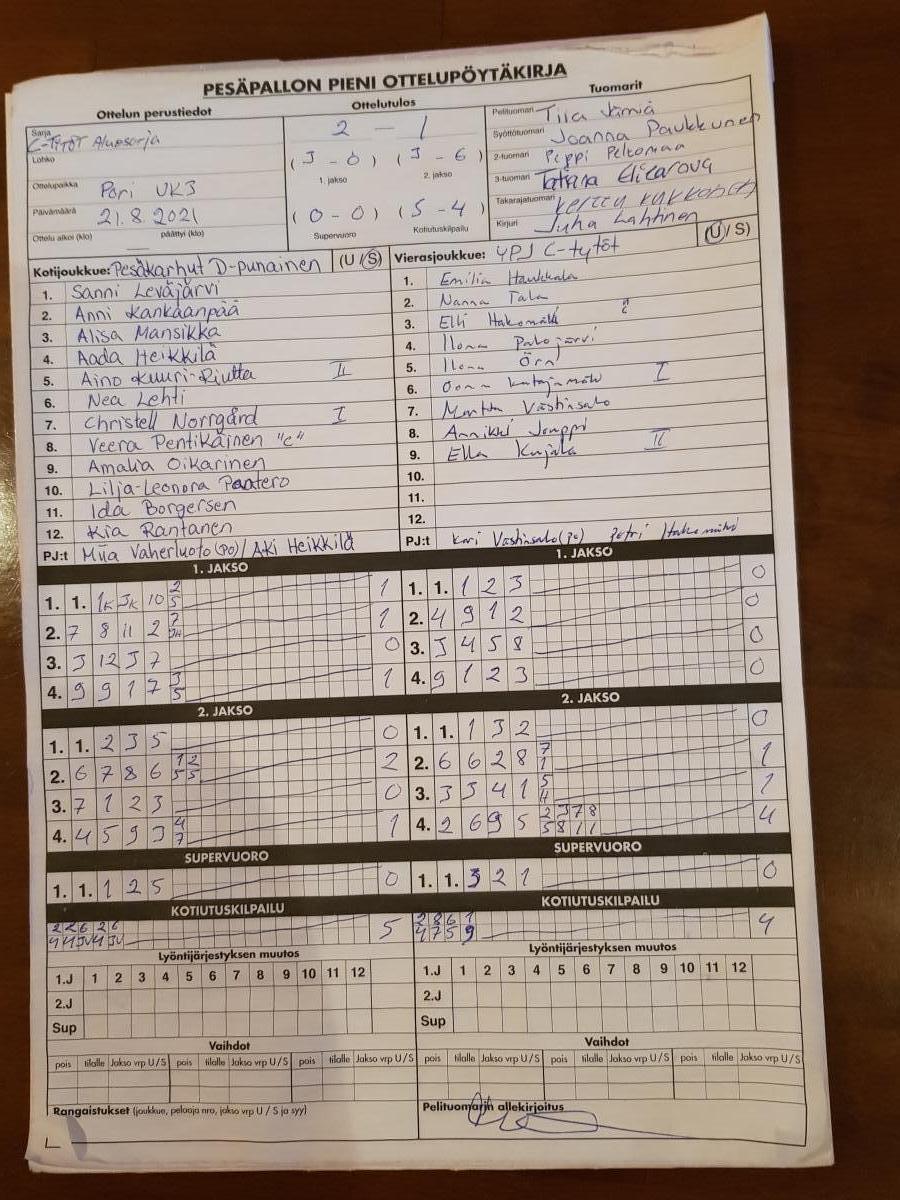 PESÄPALLON PIENI OTTELUPÖYTÄKIRJA
Ottelun perustiedot
Sarja C-TYTÖT Aluesarja
Lohko
Ottelupaikka Pori UK3
Päivämäärä 21.8.2021
Ottelu alkoi (klo) päättyi (klo)
Ottelutulos
2 - 1
(3 - 0) (3 - 6)
1. jakso 2. jakso
(0 - 0) (5 - 4)
Supervuoro Kotiutuskilpailu
Tuomarit
Pelituomari Tiia Jämiä
Syöttötuomari Joanna Paukkunen
2-tuomari Peppi Peltomaa
3-tuomari Tatiana Elizarova
Takarajatuomari Kerttu
Kirjuri Juha Lahtinen
Kotijoukkue: Pesäkarhut D-punainen (U/S)
1. Sanni Leväjärvi
2. Anni Kankaanpää
3. Alisa Mansikka
4. Aada Heikkilä
5. Aino Kuuri-Riutta II
6. Nea Lehti
7. Christell Norrgård I
8. Veera Pentikäinen "c"
9. Amalia Oikarinen
10. Lilja-Leonora Paatero
11. Ida Borgersen
12. Kia Rantanen
PJ:t Miia Vaherluoto (PO) / Aki Heikkilä
Vierasjoukkue: YPJ C-tytöt (U/S)
1. Emilia Haukkala
2. Nanna Tala
3. Elli Hakomäki c
4. Ilona Palojärvi
5. Ilona Örn
6. Oona Katajamäki I
7. Martta Västinsalo
8. Annikki Jouppi
9. Ella Kujala II
10.
11.
12.
PJ:t Kari Västinsalo (PO) Petri Hakomäki
1. JAKSO
1. 1. 1K 3K 10 2 5 1
2. 7 8 11 2 1
3. 3 12 3 7 0
4. 9 9 1 7 3 5 1
1. JAKSO
1. 1. 1 2 3 0
2. 4 9 1 2 0
3. 3 4 5 8 0
4. 9 1 2 3 0
2. JAKSO
1. 1. 2 3 5 0
2. 6 7 8 6 1 2 5 5 2
3. 7 1 2 3 0
4. 4 5 9 3 4 7 1
2. JAKSO
1. 1. 1 3 2 0
2. 6 6 2 8 7 1 1
3. 3 3 4 1 5 4 1
4. 2 6 9 5 2 3 7 8 5 8 1 1 4
SUPERVUORO
1. 1. 1 2 5 0
SUPERVUORO
1. 1. 3 2 1 0
KOTIUTUSKILPAILU
2 2 6 2 6 5
KOTIUTUSKILPAILU
2 8 6 1 4
4 7 5 9
Lyöntijärjestyksen muutos
1.J 1 2 3 4 5 6 7 8 9 10 11 12
2.J
Sup
Lyöntijärjestyksen muutos
1.J 1 2 3 4 5 6 7 8 9 10 11 12
2.J
Sup
Vaihdot
pois tilalle Jakso vrp U/S pois tilalle Jakso vrp U/S pois tilalle Jakso vrp U/S
Vaihdot
pois tilalle Jakso vrp U/S pois tilalle Jakso vrp U/S pois tilalle Jakso vrp U/S
Rangaistukset (joukkue, pelaaja nro, jakso vrp U / S ja syy)
Pelituomarin allekirjoitus